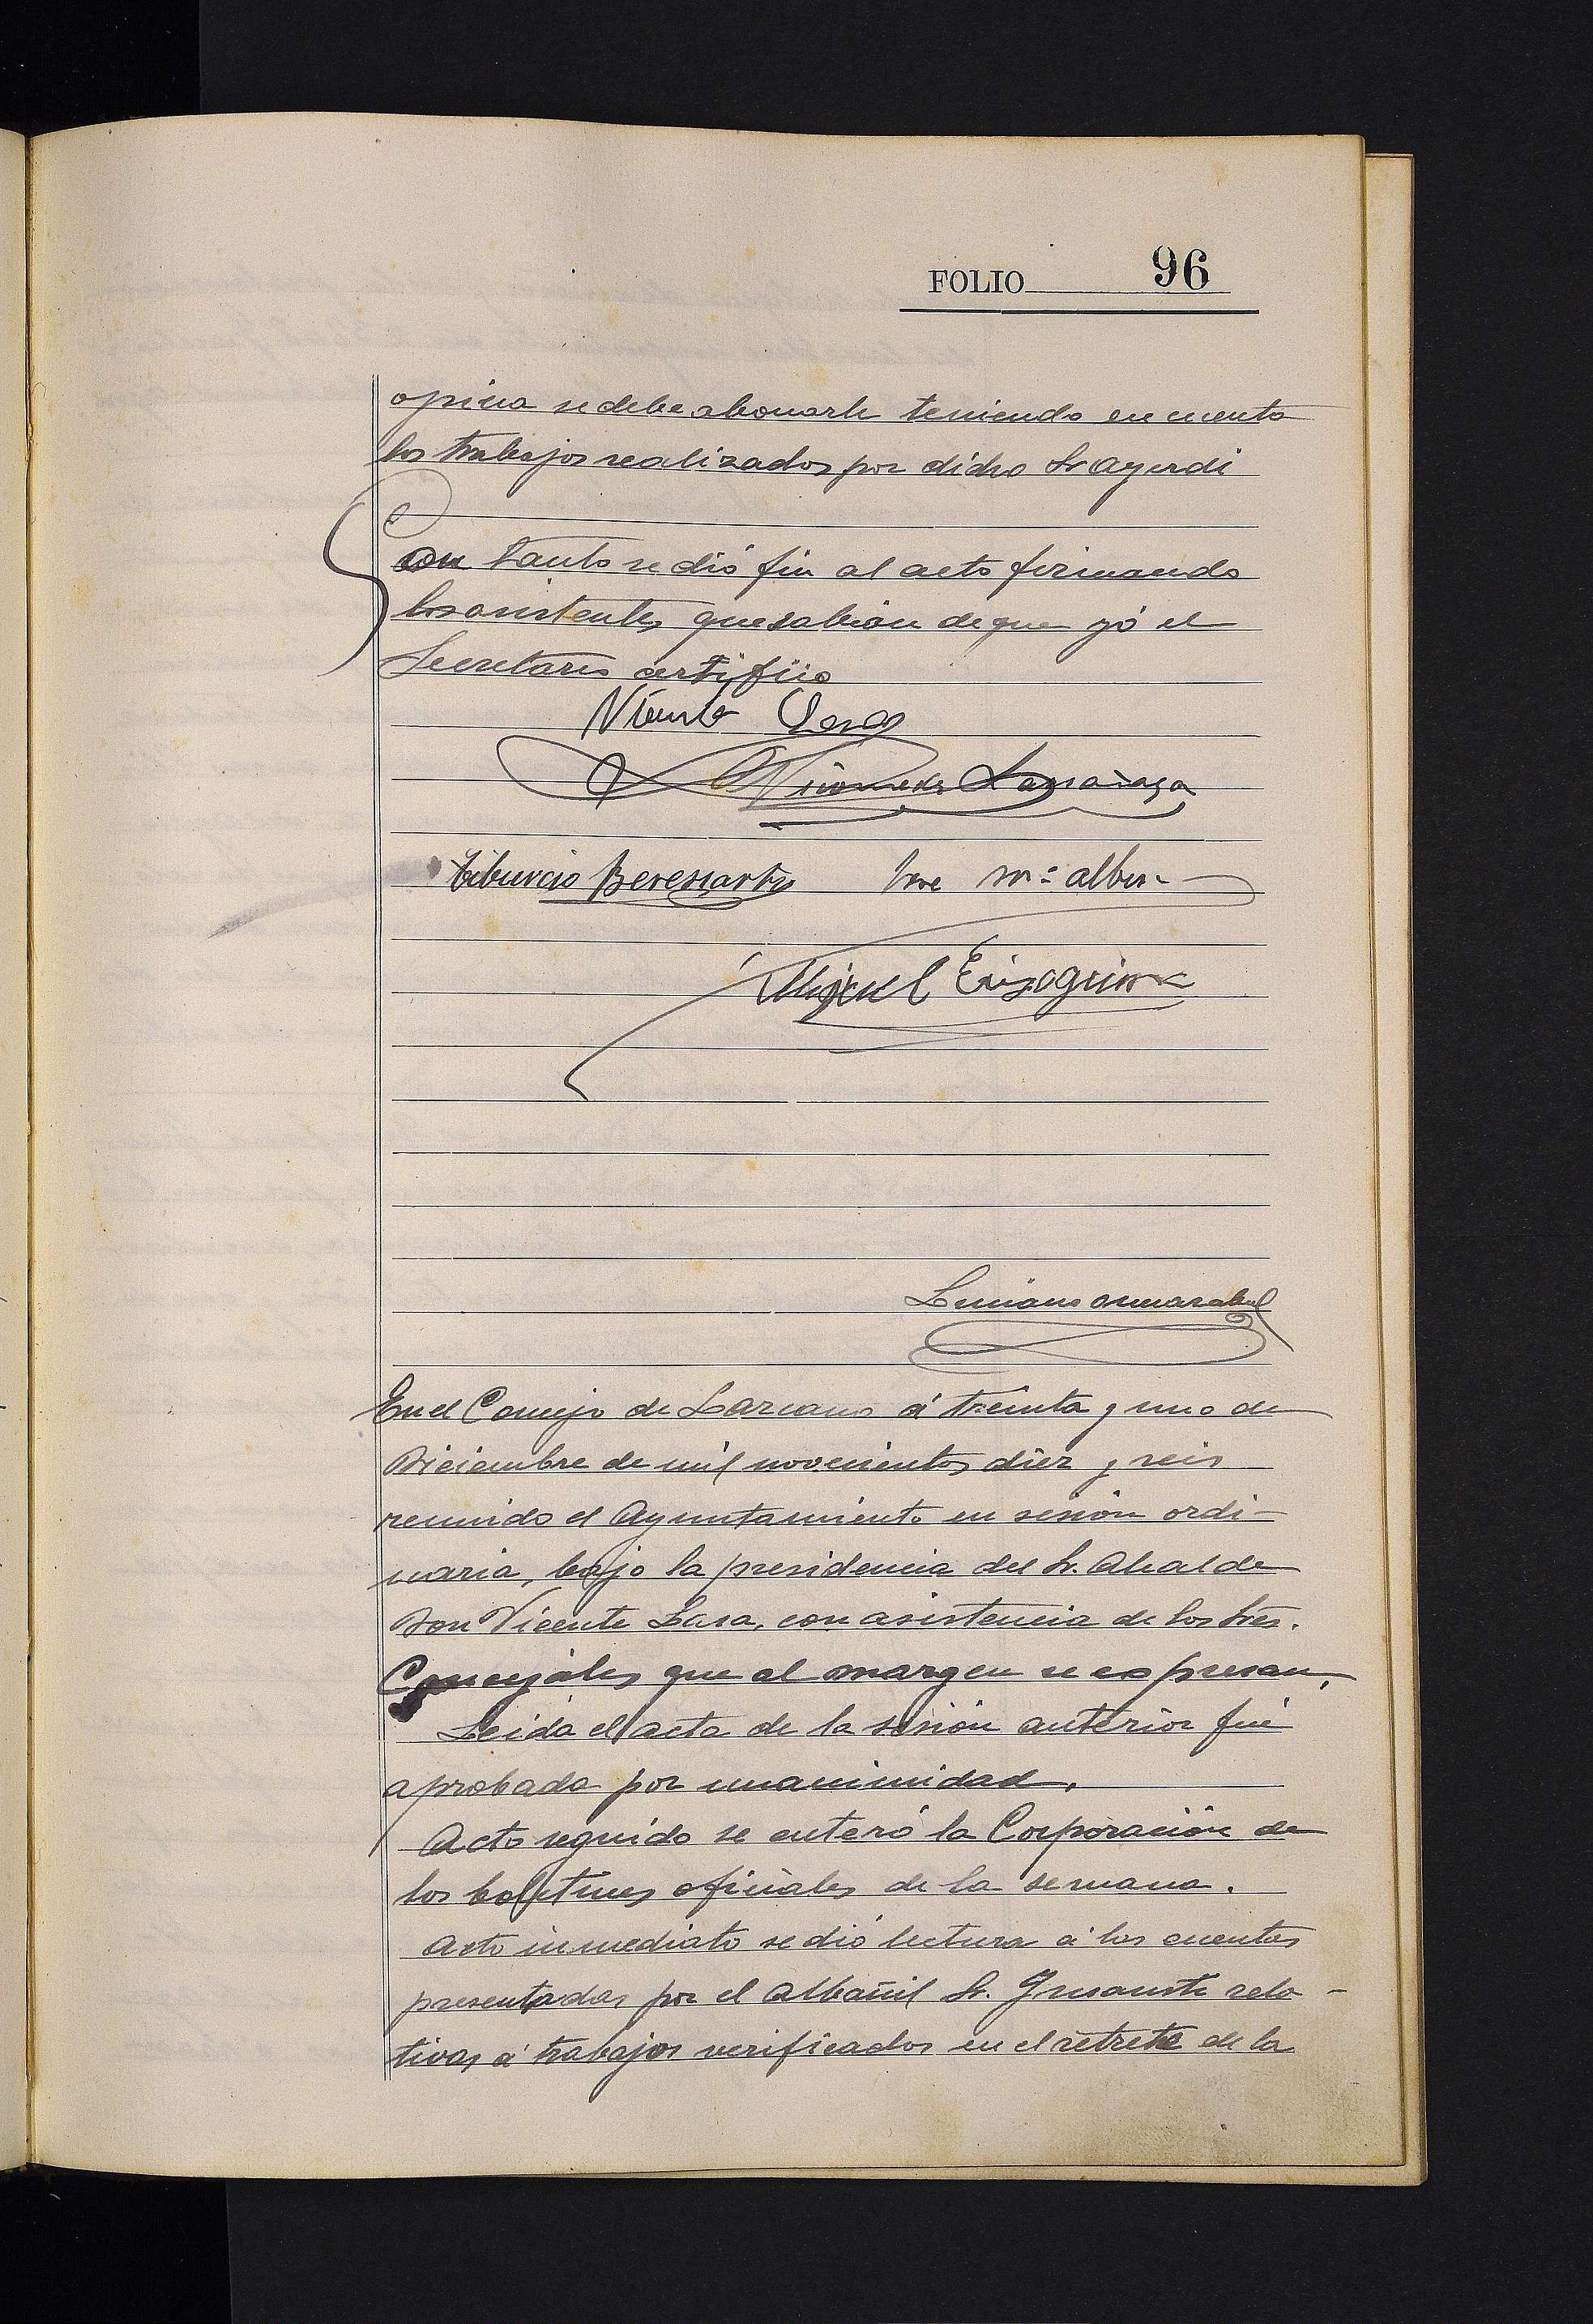 FOLIO 96
opina se debe abonarle teniendo en cuenta
los trabajos realizados por dicho Sr Ayerdi
Con tanto se dió fin al acto firmando
los asistentes que sabian de que yó el
Secretario certifico
Vicente Lasa
Nicomedes Larrañaga
Tiburcio Beresiartu Jose Mª Albis
Miguel
Luciano
En el Concejo de Lazcano á treinta y uno de
Diciembre de mil novecientos diez y seis
reunido el Ayuntamiento en sesión ordi-
naria, bajo la presidencia del Sr. Alcalde
Don Vicente Lasa, con asistencia de los Sres.
Concejales que al margen se expresan,
Leida el acta de la sesión anterior fué
aprobada por unanimidad.
Acto seguido se enteró la Corporación de
los boletines oficiales de la semana.
Acto inmediato se dió lectura á las cuentas
presentadas por el Albañil Sr. Insausti rela-
tivas á trabajos verificados en el retrete de la